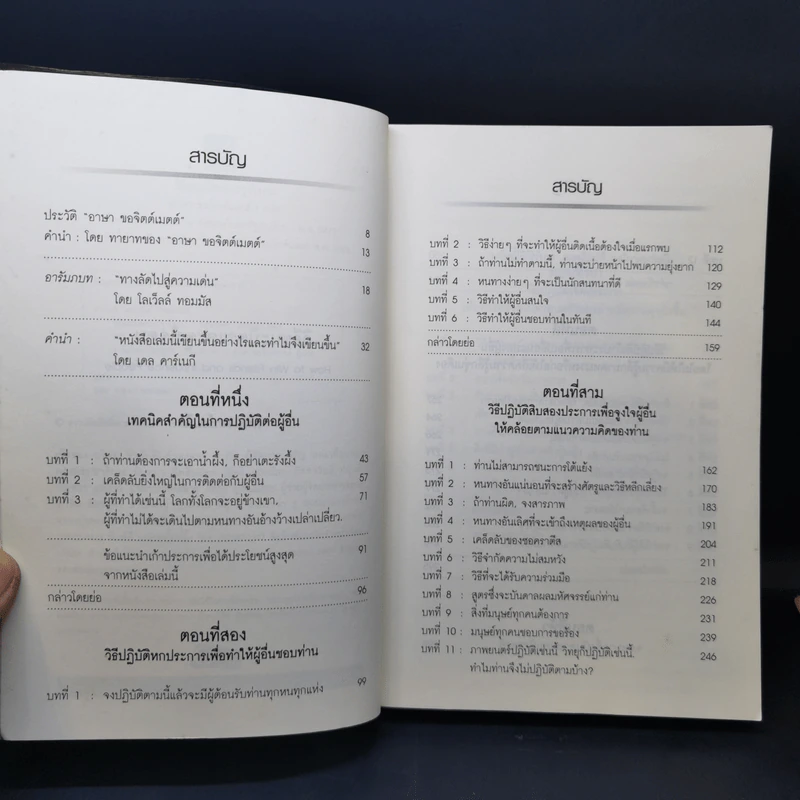 สารบัญ
ประวัติ "อาษา ขอจิตต์เมตต์" 8
คำนำ : โดย ทายาทของ "อาษา ขอจิตต์เมตต์" 13
อารัมภบท : "ทางลัดไปสู่ความเด่น" 18
โดย โลเว็ลล์ ทอมมัส
คำนำ : "หนังสือเล่มนี้เขียนขึ้นอย่างไรและทำไมจึงเขียนขึ้น" 32
โดย เดล คาร์เนกี
ตอนที่หนึ่ง
เทคนิคสำคัญในการปฏิบัติต่อผู้อื่น
บทที่ 1 : ถ้าท่านต้องการจะเอาน้ำผึ้ง, ก็อย่าเตะรังผึ้ง 43
บทที่ 2 : เคล็ดลับยิ่งใหญ่ในการติดต่อกับผู้อื่น 57
บทที่ 3 : ผู้ที่ทำได้เช่นนี้ โลกทั้งโลกจะอยู่ข้างเขา, 71
ผู้ที่ทำไม่ได้จะเดินไปตามหนทางอันอ้างว้างเปล่าเปลี่ยว.
ข้อแนะนำเก้าประการเพื่อได้ประโยชน์สูงสุด 91
จากหนังสือเล่มนี้
กล่าวโดยย่อ 96
ตอนที่สอง
วิธีปฏิบัติหกประการเพื่อทำให้ผู้อื่นชอบท่าน
บทที่ 1 : จงปฏิบัติตามนี้แล้วจะมีผู้ต้อนรับท่านทุกหนทุกแห่ง 99
สารบัญ
บทที่ 2 : วิธีง่ายๆ ที่จะทำให้ผู้อื่นติดเนื้อต้องใจเมื่อแรกพบ 112
บทที่ 3 : ถ้าท่านไม่ทำตามนี้, ท่านจะบ่ายหน้าไปพบความยุ่งยาก 120
บทที่ 4 : หนทางง่ายๆ ที่จะเป็นนักสนทนาที่ดี 129
บทที่ 5 : วิธีทำให้ผู้อื่นสนใจ 140
บทที่ 6 : วิธีทำให้ผู้อื่นชอบท่านในทันที 144
กล่าวโดยย่อ 159
ตอนที่สาม
วิธีปฏิบัติสิบสองประการเพื่อจูงใจผู้อื่น
ให้คล้อยตามแนวความคิดของท่าน
บทที่ 1 : ท่านไม่สามารถชนะการโต้แย้ง 162
บทที่ 2 : หนทางอันแน่นอนที่จะสร้างศัตรูและวิธีหลีกเลี่ยง 170
บทที่ 3 : ถ้าท่านผิด, จงสารภาพ 183
บทที่ 4 : หนทางอันเลิศที่จะเข้าถึงเหตุผลของผู้อื่น 191
บทที่ 5 : เคล็ดลับของซอคราตีส 204
บทที่ 6 : วิธีจำกัดความไม่สมหวัง 211
บทที่ 7 : วิธีที่จะได้รับความร่วมมือ 218
บทที่ 8 : สูตรซึ่งจะบันดาลผลมหัศจรรย์แก่ท่าน 226
บทที่ 9 : สิ่งที่มนุษย์ทุกคนต้องการ 231
บทที่ 10 : มนุษย์ทุกคนชอบการขอร้อง 239
บทที่ 11 : ภาพยนตร์ปฏิบัติเช่นนี้. วิทยุก็ปฏิบัติเช่นนี้. 246
ทำไมท่านจึงไม่ปฏิบัติตามบ้าง?